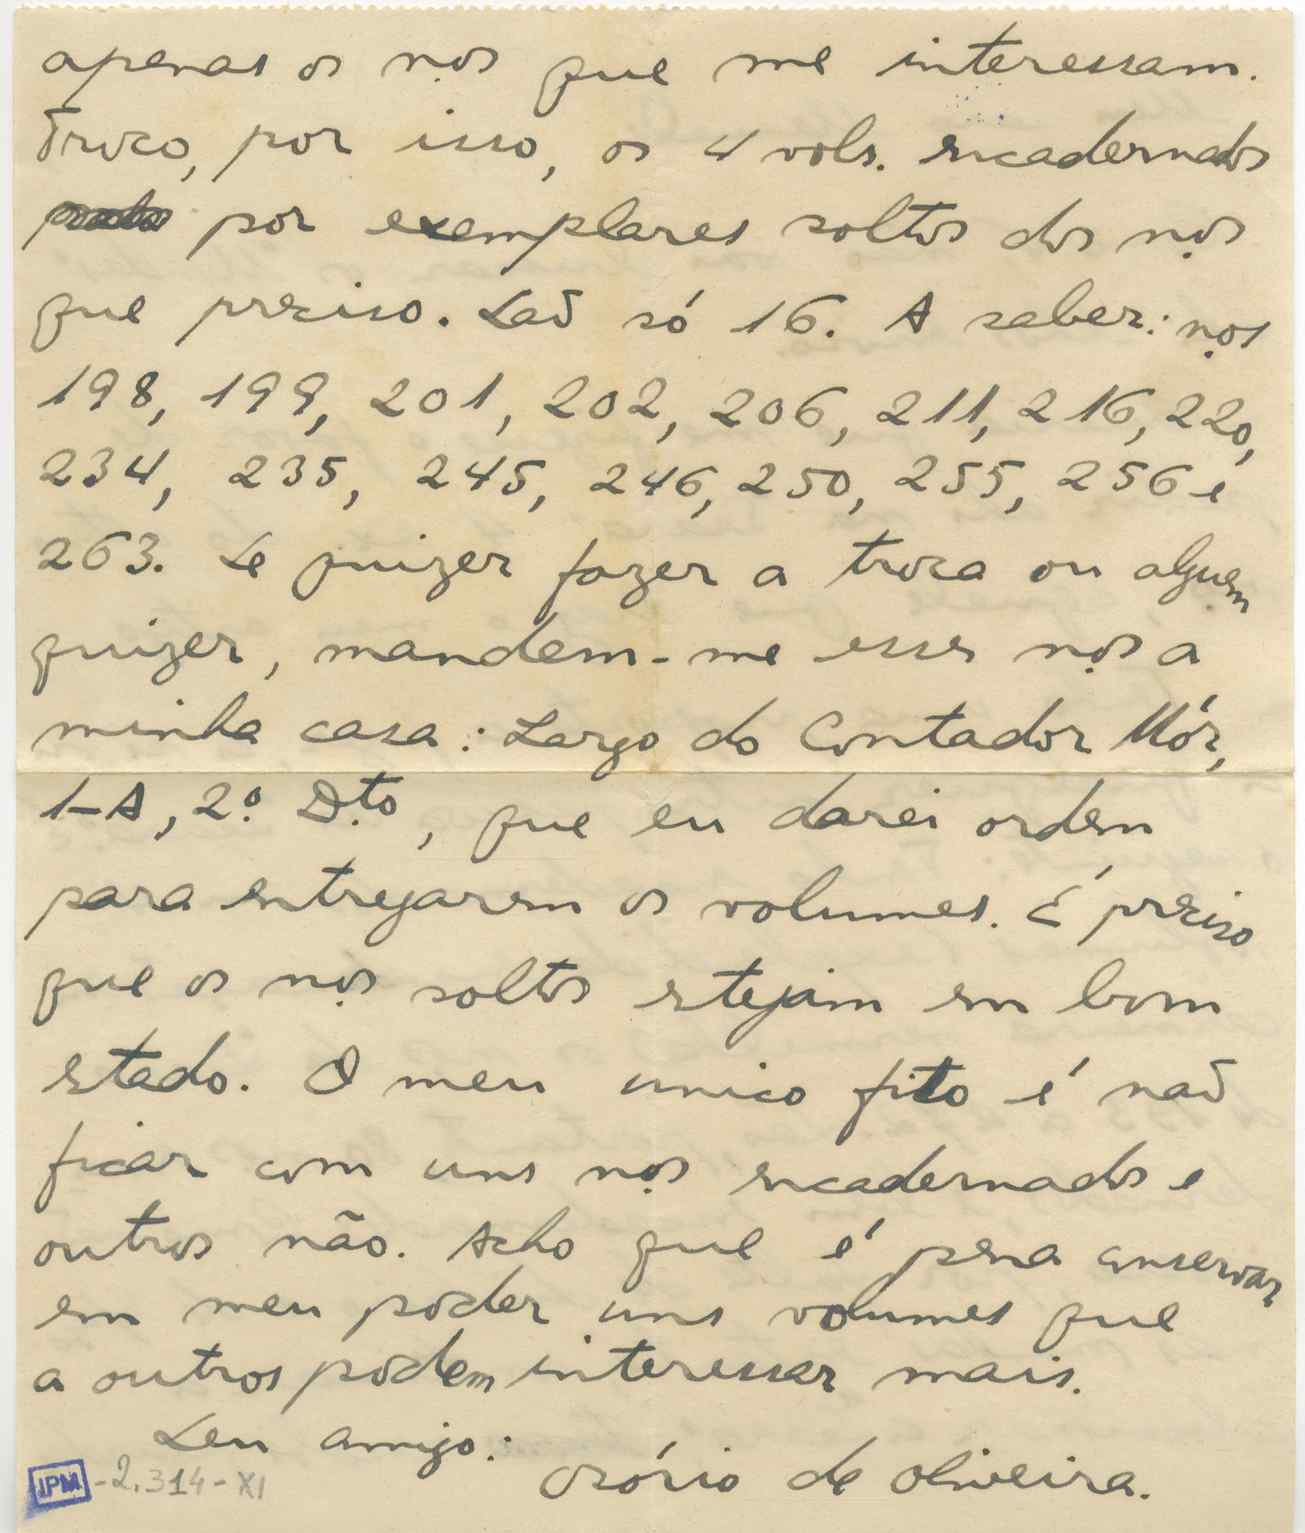 apenas os nos que me interessam.
Troco, por isso, os 4 vols. encadernados
por exemplares soltos dos nos
que preciso. Saõ só 16. A saber: nos
198, 199, 201, 202, 206, 211, 216, 220,
234, 235, 245, 246, 250, 255, 256 e
263. Se quizer fazer a troca ou alguem
quizer, mandem-me esses nos a
minha casa: Largo do Contador Mór,
1-A, 2.º D.to, que eu darei ordem
para entregarem os volumes. É preciso
que os nos soltos estejam em bom
estado. O meu unico fito é naõ
ficar com uns nos encadernados e
outros não. Acho que é pena conservar
em meu poder uns volumes que
a outros podem interessar mais.
Seu amigo:
Osório de Oliveira.
IPM -2.314-XI